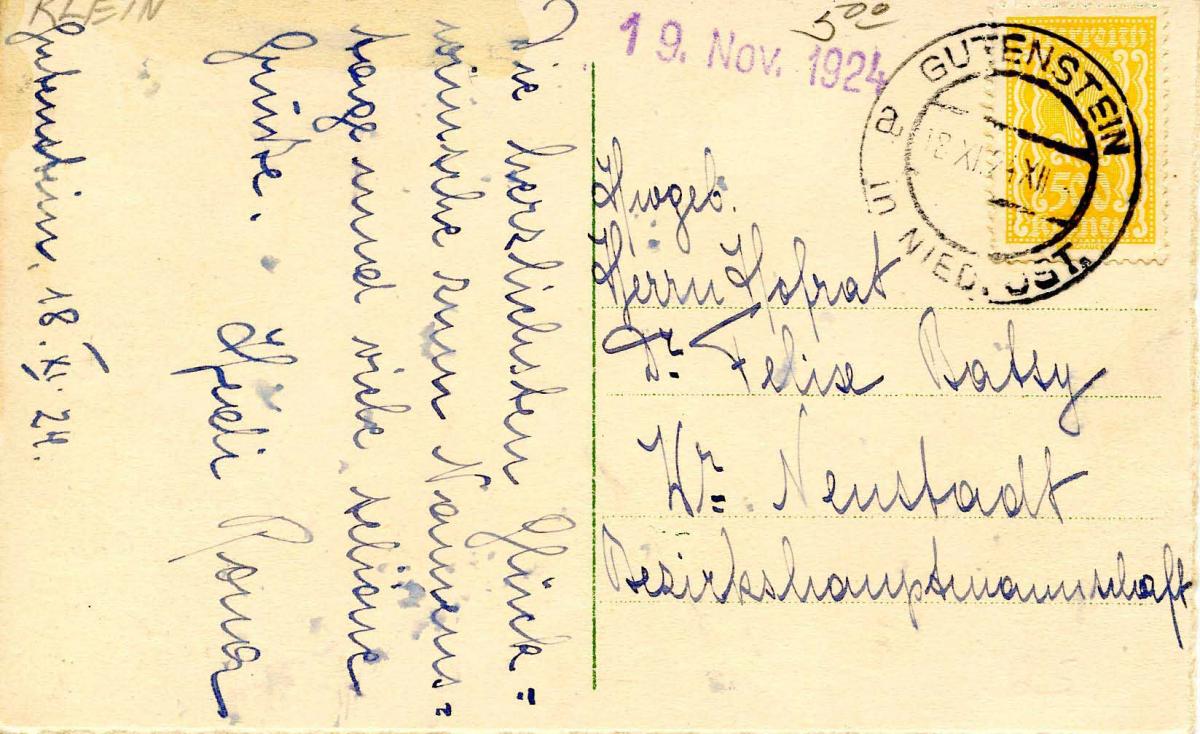 KLEIN
Gutenstein, 18. XI. 24.
Die herzlichsten Glück=
wünsche zum Namens=
tage und viele schöne
Grüße.
Hedi Rona
500
19. Nov. 1924
GUTENSTEIN
a
18.XI.24.XII
NIED. ÖST.
500
Kronen
Hwgeb.
Herrn Hofrat
Dr. Felix Batsy
Wr. Neustadt
Bezirkshauptmannschaft